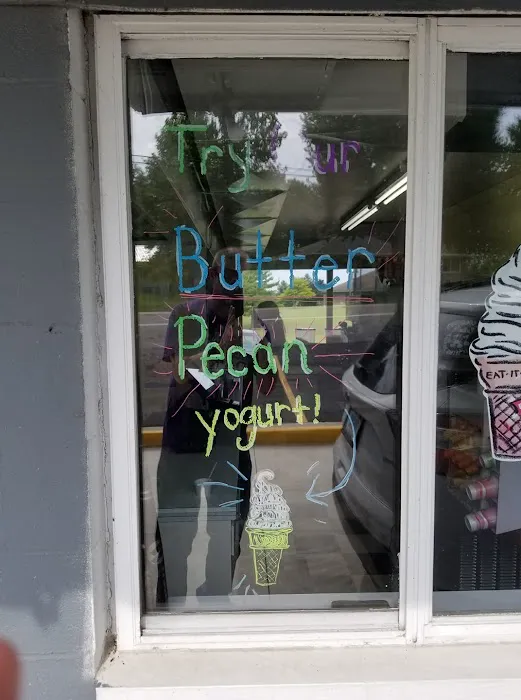 Try ur
Butter
Pecan
yogurt!
EAT-IT